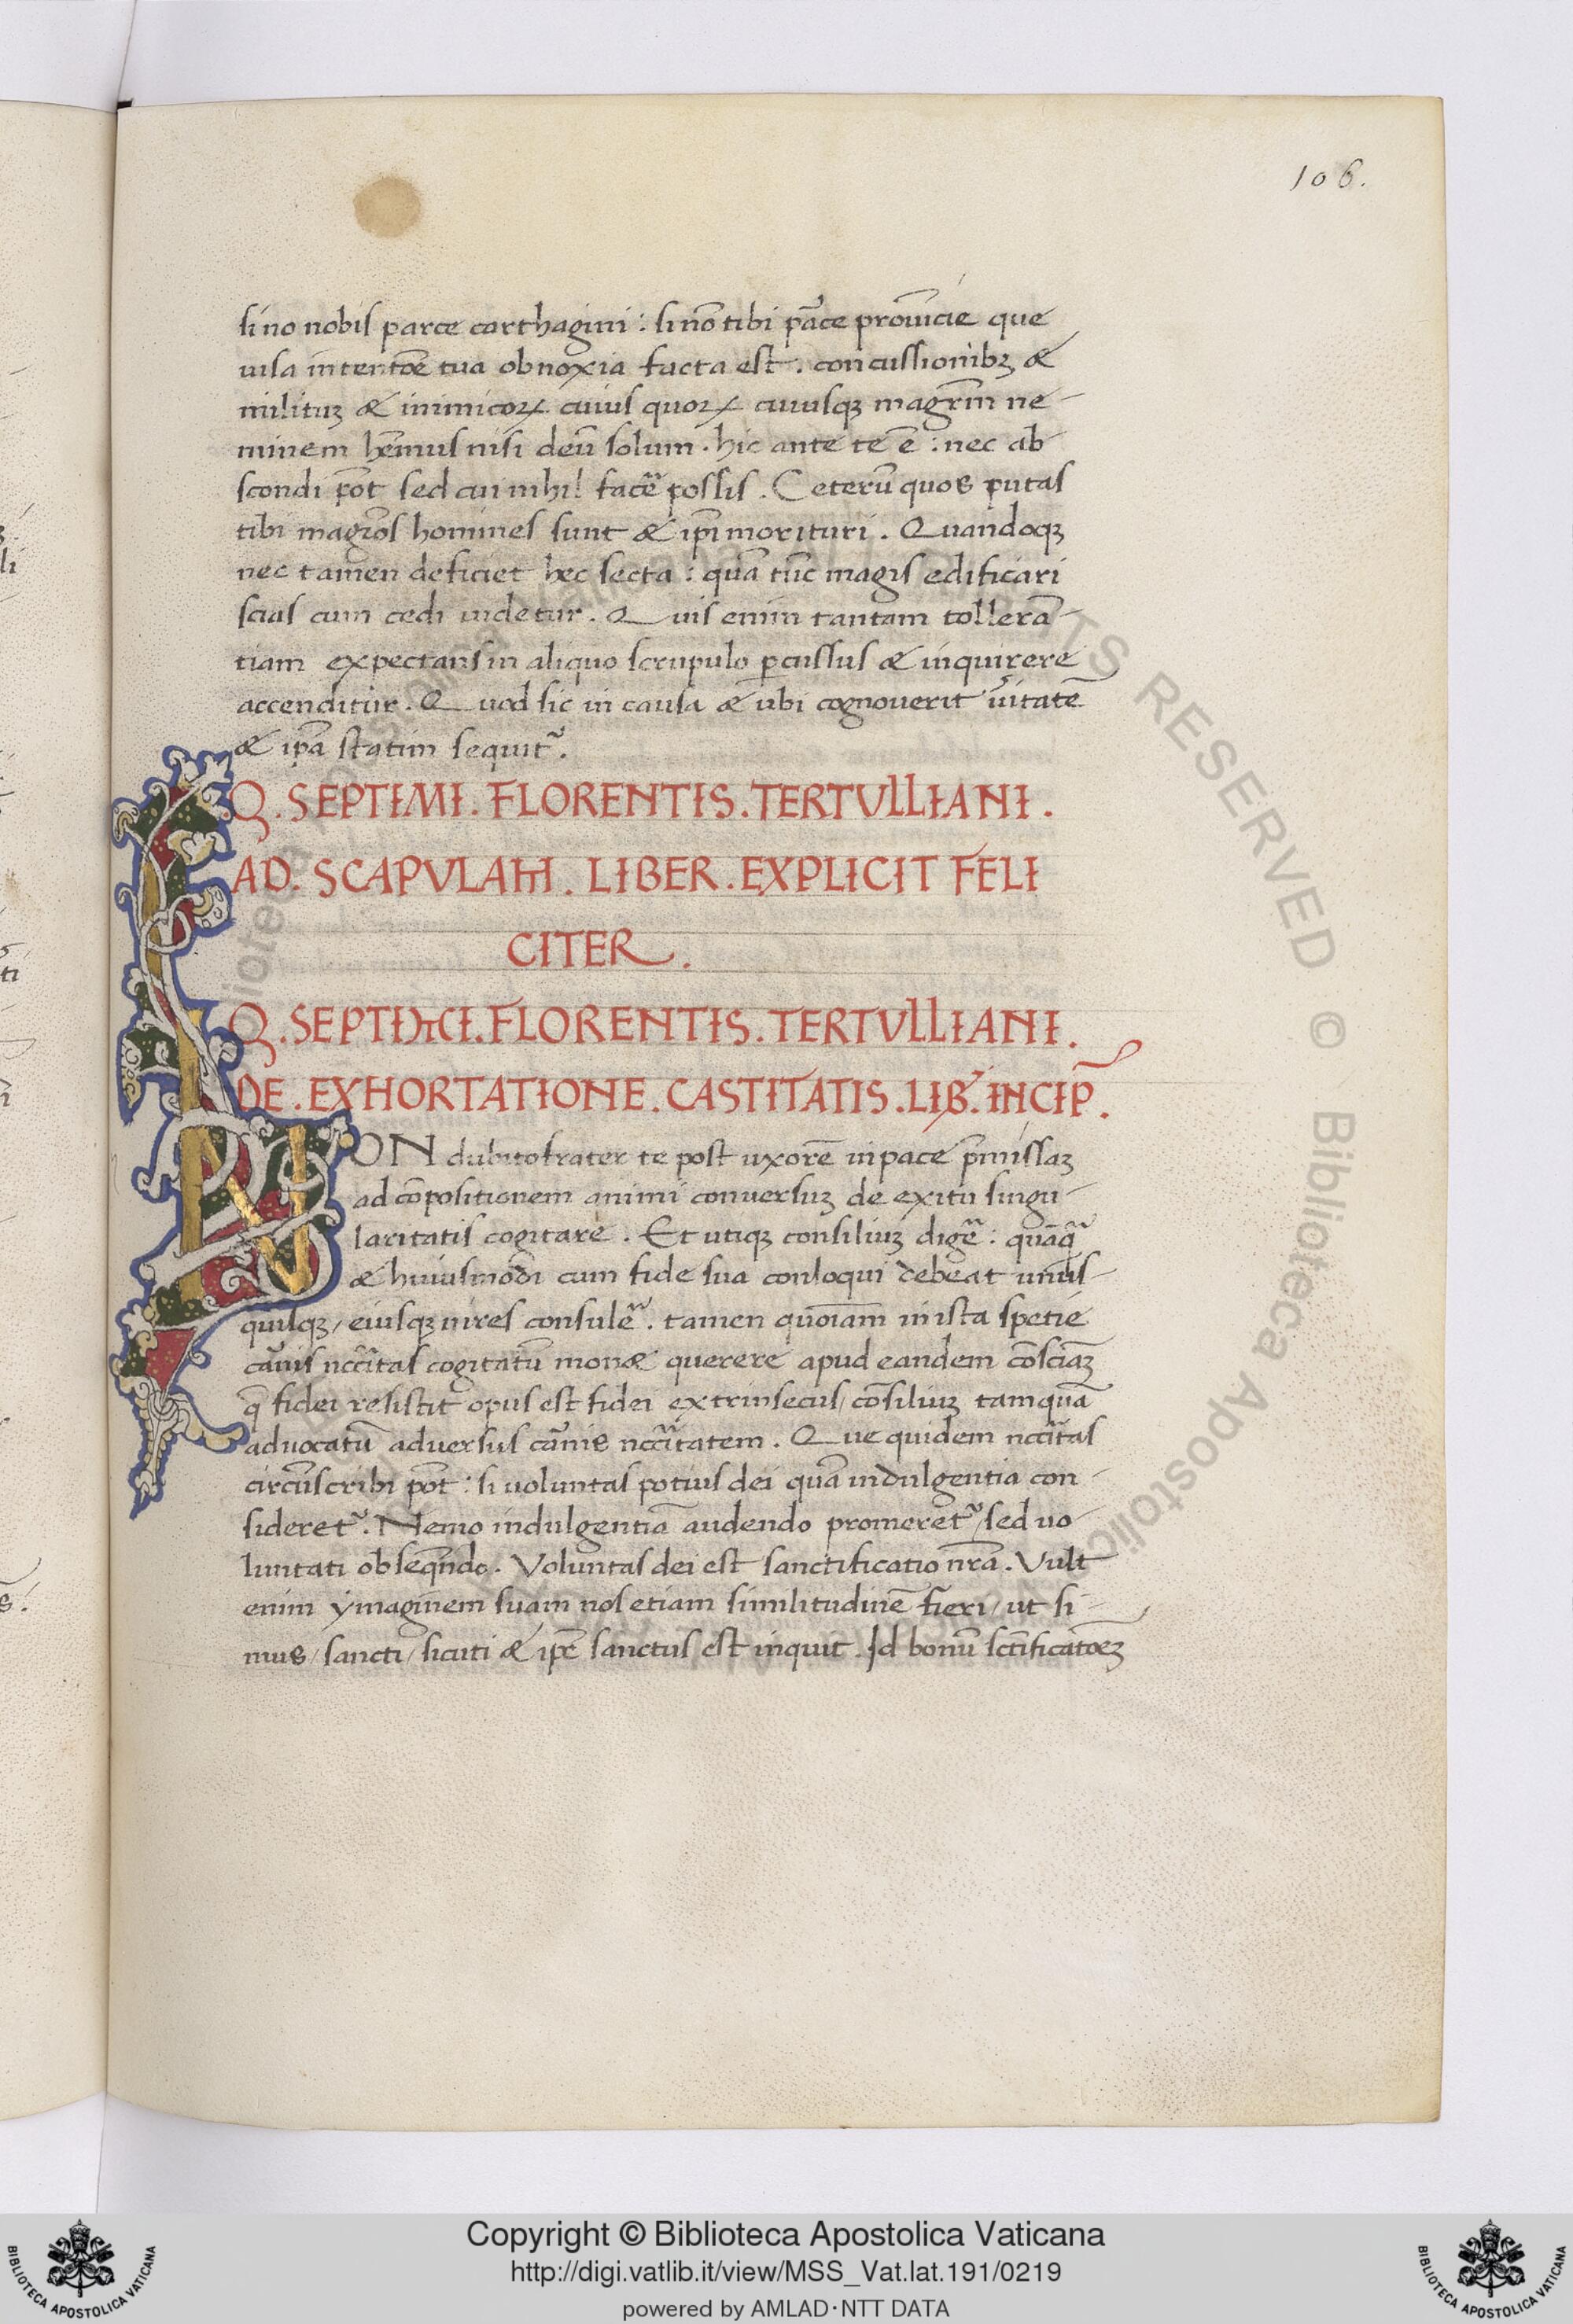 106.
si no nobis parce carthagini : si nō tibi p̄ace prouīcie que
uisa intentōe tua obnoxia facta est . concussionibꝫ &
milituꝫ & inimicoꝝ cuius quoꝝ cuiusqꝫ magr̄m ne-
minem hēmus nisi deū solum . hic ante te ē : nec ab
scondi pōt sed cui nihil facē possis . Ceterū quos putas
tibi magr̄os homines sunt & ip̄i morituri . Quandoqꝫ
nec tamen deficiet hec secta : quā tūc magis edificari
scias cum cedi uidetur . Quis enim tantam tollerā-
tiam expectans in aliquo scrupulo ꝑcussus & inquirere
accenditur . Quod sic in causa & ubi cognouerit ūitatē
& ip̄a statim sequit᷑ .
Q . SEPTIMI . FLORENTIS . TERTULLIANI .
AD . SCAPVLAM . LIBER . EXPLICIT FELI
CITER .
Q . SEPTIMI . FLORENTIS . TERTVLLIANI .
DE . EXHORTATIONE . CASTITATIS . LIB̄ . INCIP̄ .
NON dubito frater te post uxorē in pace p̄missaꝫ
ad cōpositionem animi conuersuꝫ de exitu singu-
laritatis cogitare . Et utiqꝫ consiliuꝫ digē : quāq̄
& huiusmōdi cum fide sua conloqui debeat unus-
quisqꝫ / eiusqꝫ uires consulē . tamen quoīam in ista spetie
cānis nccītas cogitatū mon& querere apud eandem cōsciāꝫ
q̄ fidei resistit opus est fidei extrinsecus / cōsiliuꝫ tamquā
aduocatū aduersus cānis nccītatem . Que quidem nccītas
circūscribi pōt : si uoluntas potius dei quā indulgentia con-
sideret᷑ . Nemo indulgentiā audendo promeret᷑ / sed uo-
luntati obseq̄ndo . Voluntas dei est sanctificatio nr̄a . Vult
enim ymaginem suam nos etiam similitudinē fieri / ut si-
mus / sancti / sicuti & ip̄e sanctus est inquit . Id bonū sctīficatōeꝫ
RESERVED © Biblioteca Apostolica
Copyright © Biblioteca Apostolica Vaticana
http://digi.vatlib.it/view/MSS_Vat.lat.191/0219
powered by AMLAD·NTT DATA
BIBLIOTECA APOSTOLICA VATICANA
BIBLIOTECA APOSTOLICA VATICANA